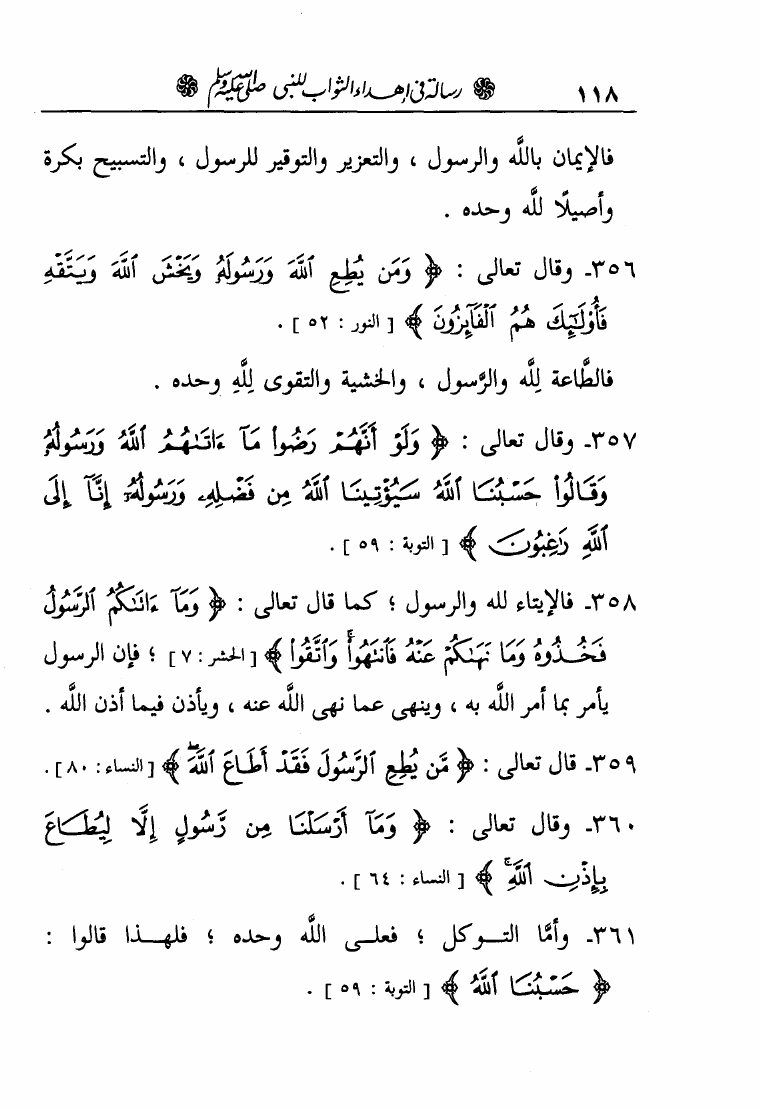 ١١٨ ۞ رسالة في إهداء الثواب للنبي صلى الله عليه وسلم ۞
فالإيمان باللَّه والرسول ، والتعزير والتوقير للرسول ، والتسبيح بكرة
وأصيلًا للَّه وحده .
٣٥٦ـ وقال تعالى : ﴿ وَمَن يُطِعِ ٱللَّهَ وَرَسُولَهُۥ وَيَخْشَ ٱللَّهَ وَيَتَّقْهِ
فَأُو۟لَٰٓئِكَ هُمُ ٱلْفَآئِزُونَ ﴾ [ النور : ٥٢ ] .
فالطَّاعة لِلَّه والرَّسول ، والخشية والتقوى لِلَّهِ وحده .
٣٥٧ـ وقال تعالى : ﴿ وَلَوْ أَنَّهُمْ رَضُوا۟ مَآ ءَاتَىٰهُمُ ٱللَّهُ وَرَسُولُهُۥ
وَقَالُوا۟ حَسْبُنَا ٱللَّهُ سَيُؤْتِينَا ٱللَّهُ مِن فَضْلِهِۦ وَرَسُولُهُۥٓ إِنَّآ إِلَى
ٱللَّهِ رَٰغِبُونَ ﴾ [ التوبة : ٥٩ ] .
٣٥٨ـ فالإيتاء لله والرسول ؛ كما قال تعالى : ﴿ وَمَآ ءَاتَىٰكُمُ ٱلرَّسُولُ
فَخُذُوهُ وَمَا نَهَىٰكُمْ عَنْهُ فَٱنتَهُوا۟ۚ وَٱتَّقُوا۟ ﴾ [ الحشر : ٧ ] ؛ فإن الرسول
يأمر بما أمر اللَّه به ، وينهى عما نهى اللَّه عنه ، ويأذن فيما أذن اللَّه .
٣٥٩ـ قال تعالى : ﴿ مَّن يُطِعِ ٱلرَّسُولَ فَقَدْ أَطَاعَ ٱللَّهَۖ ﴾ [ النساء : ٨٠ ] .
٣٦٠ـ وقال تعالى : ﴿ وَمَآ أَرْسَلْنَا مِن رَّسُولٍ إِلَّا لِيُطَاعَ
بِإِذْنِ ٱللَّهِۚ ﴾ [ النساء : ٦٤ ] .
٣٦١ـ وأمَّا التـوكل ؛ فعلـى اللَّه وحده ؛ فلهـذا قالوا :
﴿ حَسْبُنَا ٱللَّهُ ﴾ [ التوبة : ٥٩ ] .